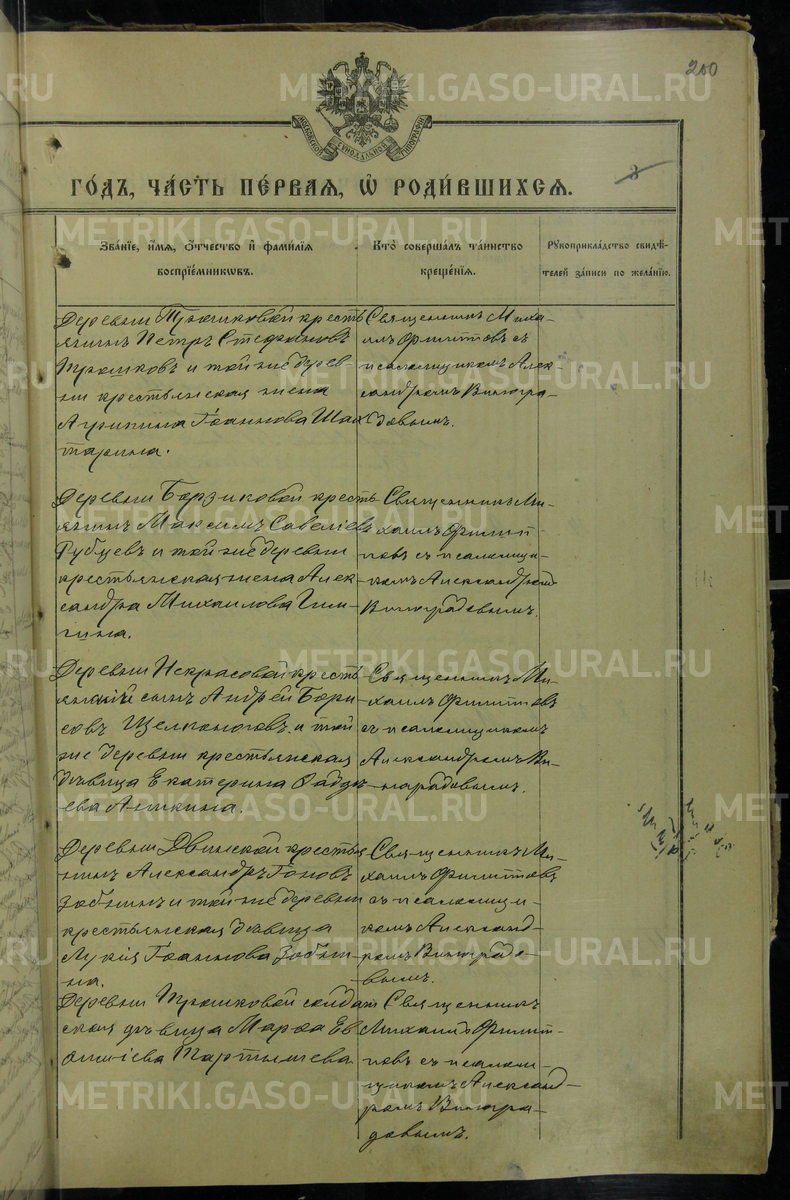 200
МОСКОВСКОЙ СѴНОДАЛЬНОЙ ТѴПОГРАФІИ
3
ГО́ДЪ, ЧА́СТЬ ПЕ́РВАЯ, Ѡ҆ РОДИ́ВШИХСѦ.
Зва́нїе, и҆́мѧ, ѻ҆́тчество и҆ фами́лїѧ
воспрїе́мникωвъ.
Кто̀ соверша́лъ та́инство
креще́нїѧ.
Рꙋкоприкла́дство свидѣ́-
телей за́писи по жела́нїю.
Деревни кресть
янинъ Петръ Стефановъ
Трошковъ и той же дерев-
ни крестьянская жена
Агрипина Іоаннова Шах
тарина.
Священникъ Миха-
илъ Филипповъ съ
псаломщикомъ Алек-
сандромъ Виногра-
довымъ.
Деревни Борзиковой кресть
янинъ Максимъ Савеліевъ
Рубцевъ и той же деревни
крестьянская жена Алек
сандра Михаилова
Священникъ Ми-
хаилъ Филип
повъ съ псаломщи-
комъ Александромъ
Виноградовымъ.
Деревни Некрасовой кресть
янскій сынъ Андрей Бори
совъ Щелконоговъ и той
же деревни крестьянская
дѣвица Екатерина Фадде
ева
Священникъ Ми-
хаилъ Филипповъ
съ псаломщикомъ
Александромъ Ви-
ноградовымъ.
Деревни Двинской крестья
нинъ Александръ
Зобнинъ и той же деревни
крестьянская дѣвица
Лукія Іоаннова Зобни
на.
Священникъ Ми-
хаилъ Филипповъ
съ псаломщи-
комъ Александ-
ромъ Виноградо-
вымъ.
Деревни Трошковой солдат
ская дѣвица Марѳа Ев
ѳиміева Тартышева
Священникъ
Михаилъ Филип-
повъ съ псалом-
щикомъ Александ-
ромъ Виногра-
довымъ.
METRIKI.GASO-URAL.RU